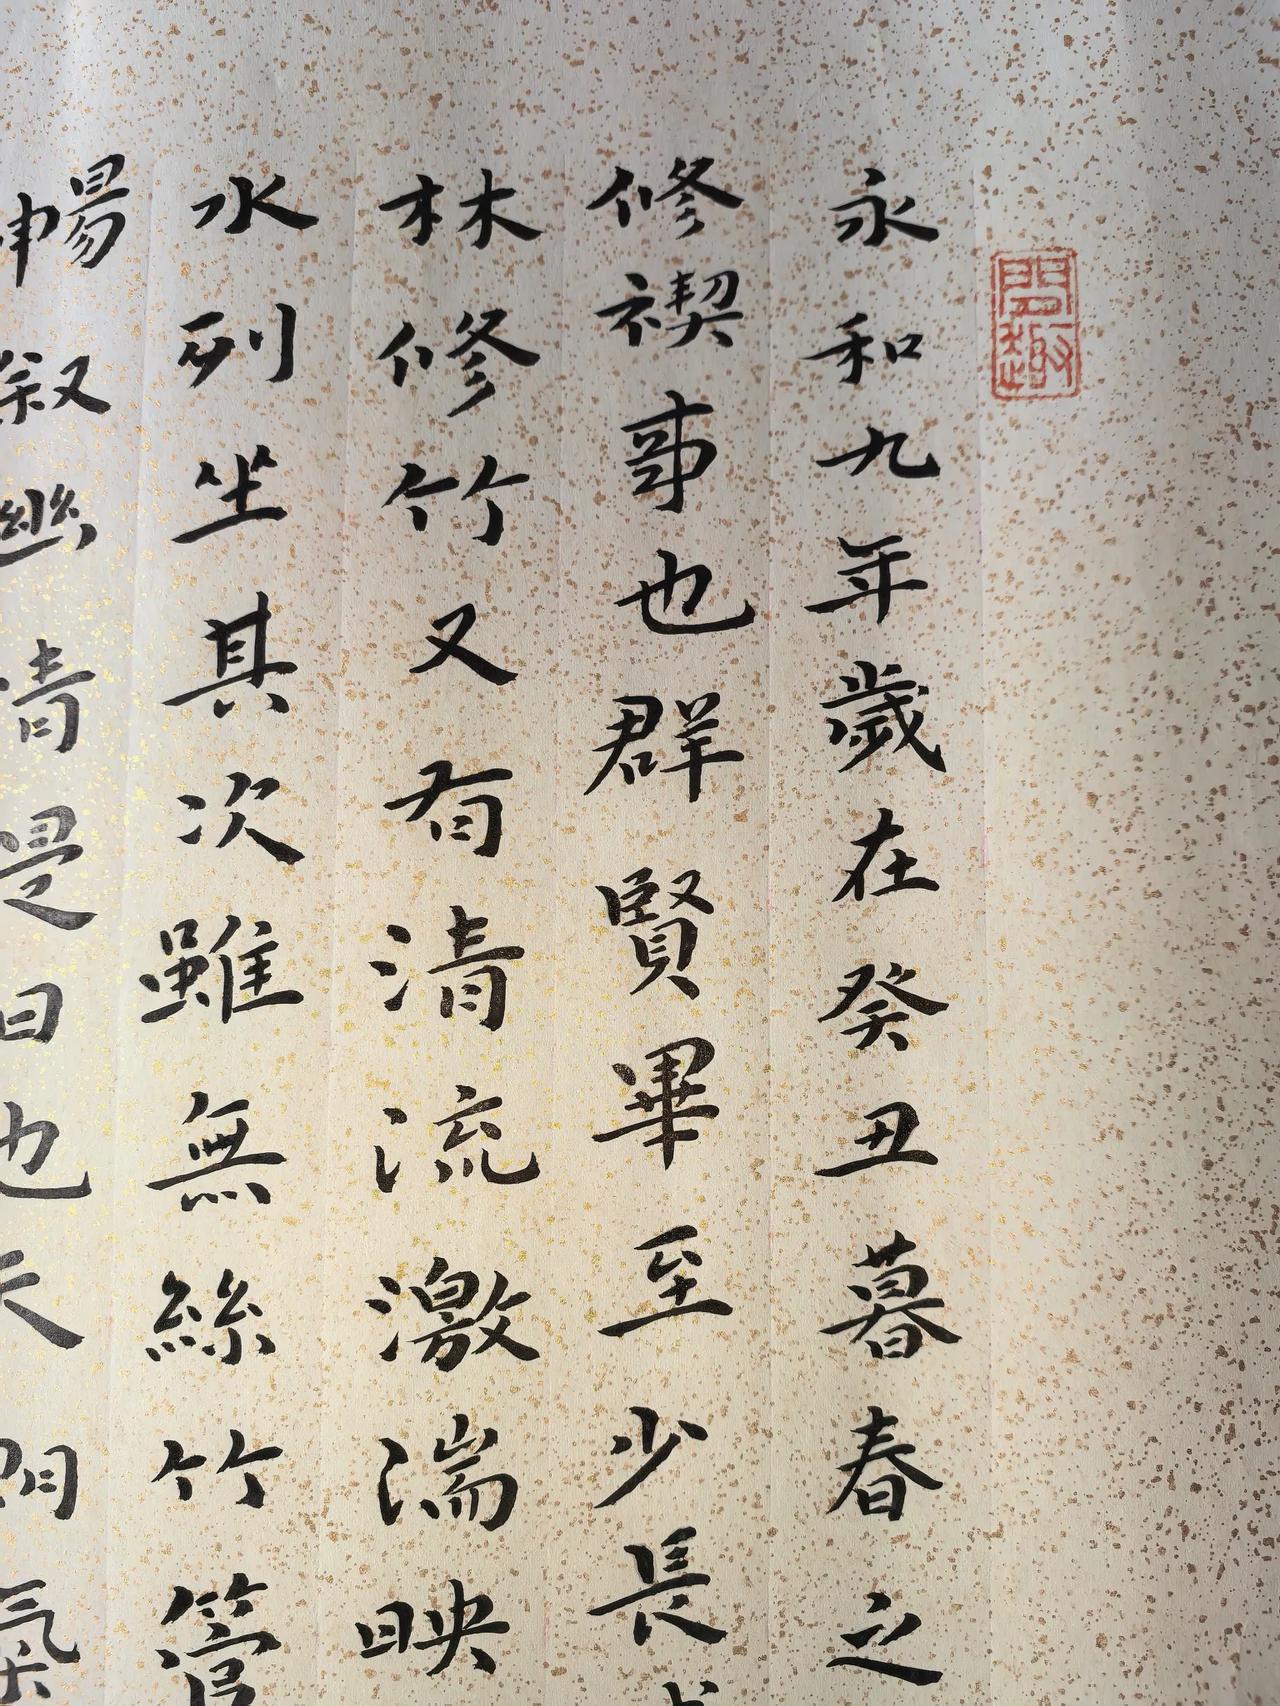 閒趣
永和九年歲在癸丑暮春之
修禊事也群賢畢至少長
林修竹又有清流激湍映
水列坐其次雖無絲竹管
暢叙幽情是日也天朗氣